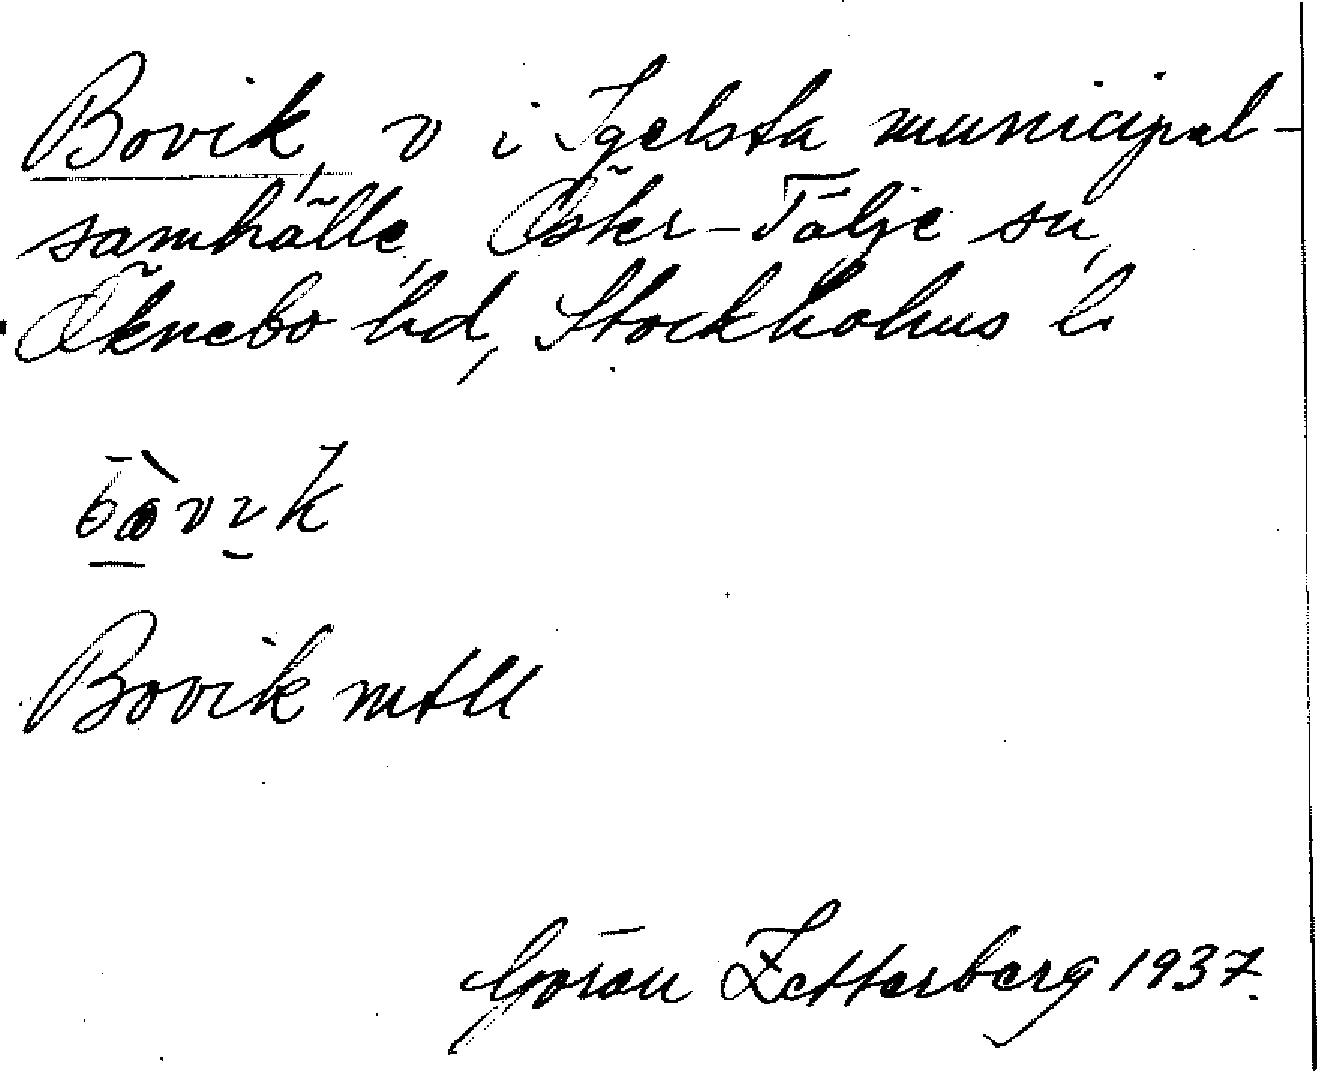 Bovik, v i Igelsta municipal-
samhälle, Öster-Tälje sn,
Öknebo hd, Stockholms l.
Bovik mtll
Göran Zetterberg 1937.